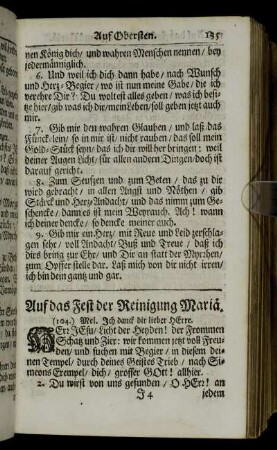 Auf Obersten. 135
nen König dich/ und wahren Menschen nennen/ bey
jedermänniglich.
6. Und weil ich dich dann habe/ nach Wunsch
und Hertz-Begier/ wo ist nun meine Gabe/ die ich
verehre Dir? Du woltest alles geben/ was ich besi-
tze hier/ gib was ich dir/ mein Leben/ soll geben jetzt auch
mir.
7. Gib mir den wahren Glauben/ und laß das
Füncklein/ so in mir ist/ nicht rauben/ das soll mein
Gold-Stück seyn/ das ich dir will her bringen: weil
deiner Augen Licht/ für allen andern Dingen/ doch ist
darauf gericht.
8. Zum Seufzen und zum Beten/ das zu dir
wird gebracht/ in allen Angst und Nöthen/ gib
Stärck und Hertz Andacht/ und das nimm zum Ge-
schencke/ dann es ist mein Weyrauch. Ach! wann
ich deiner dencke/ so dencke meiner auch.
9. Gib mir ein Hertz/ mit Reue und Leid zerschla-
gen sehr/ voll Andacht/ Buß und Treue/ daß ich
dirs bring zur Ehr/ und Dir an statt der Myrrhen/
zum Opffer stelle dar. Laß mich von dir nicht irren/
ich bin dein gantz und gar.
Auf das Fest der Reinigung Mariä.
(104.) Mel. Ich danck dir lieber HErre.
HErr JEsu/ Licht der Heyden! der Frommen
Schatz und Zier: wir kommen jetzt voll Freu-
den/ und suchen mit Begier/ in diesem dei-
nen Tempel/ durch deines Geistes Trieb/ nach Si-
meons Exempel/ dich/ grosser GOtt! allhier.
2. Du wirst von uns gefunden/ O HErr! an
J 4 jedem